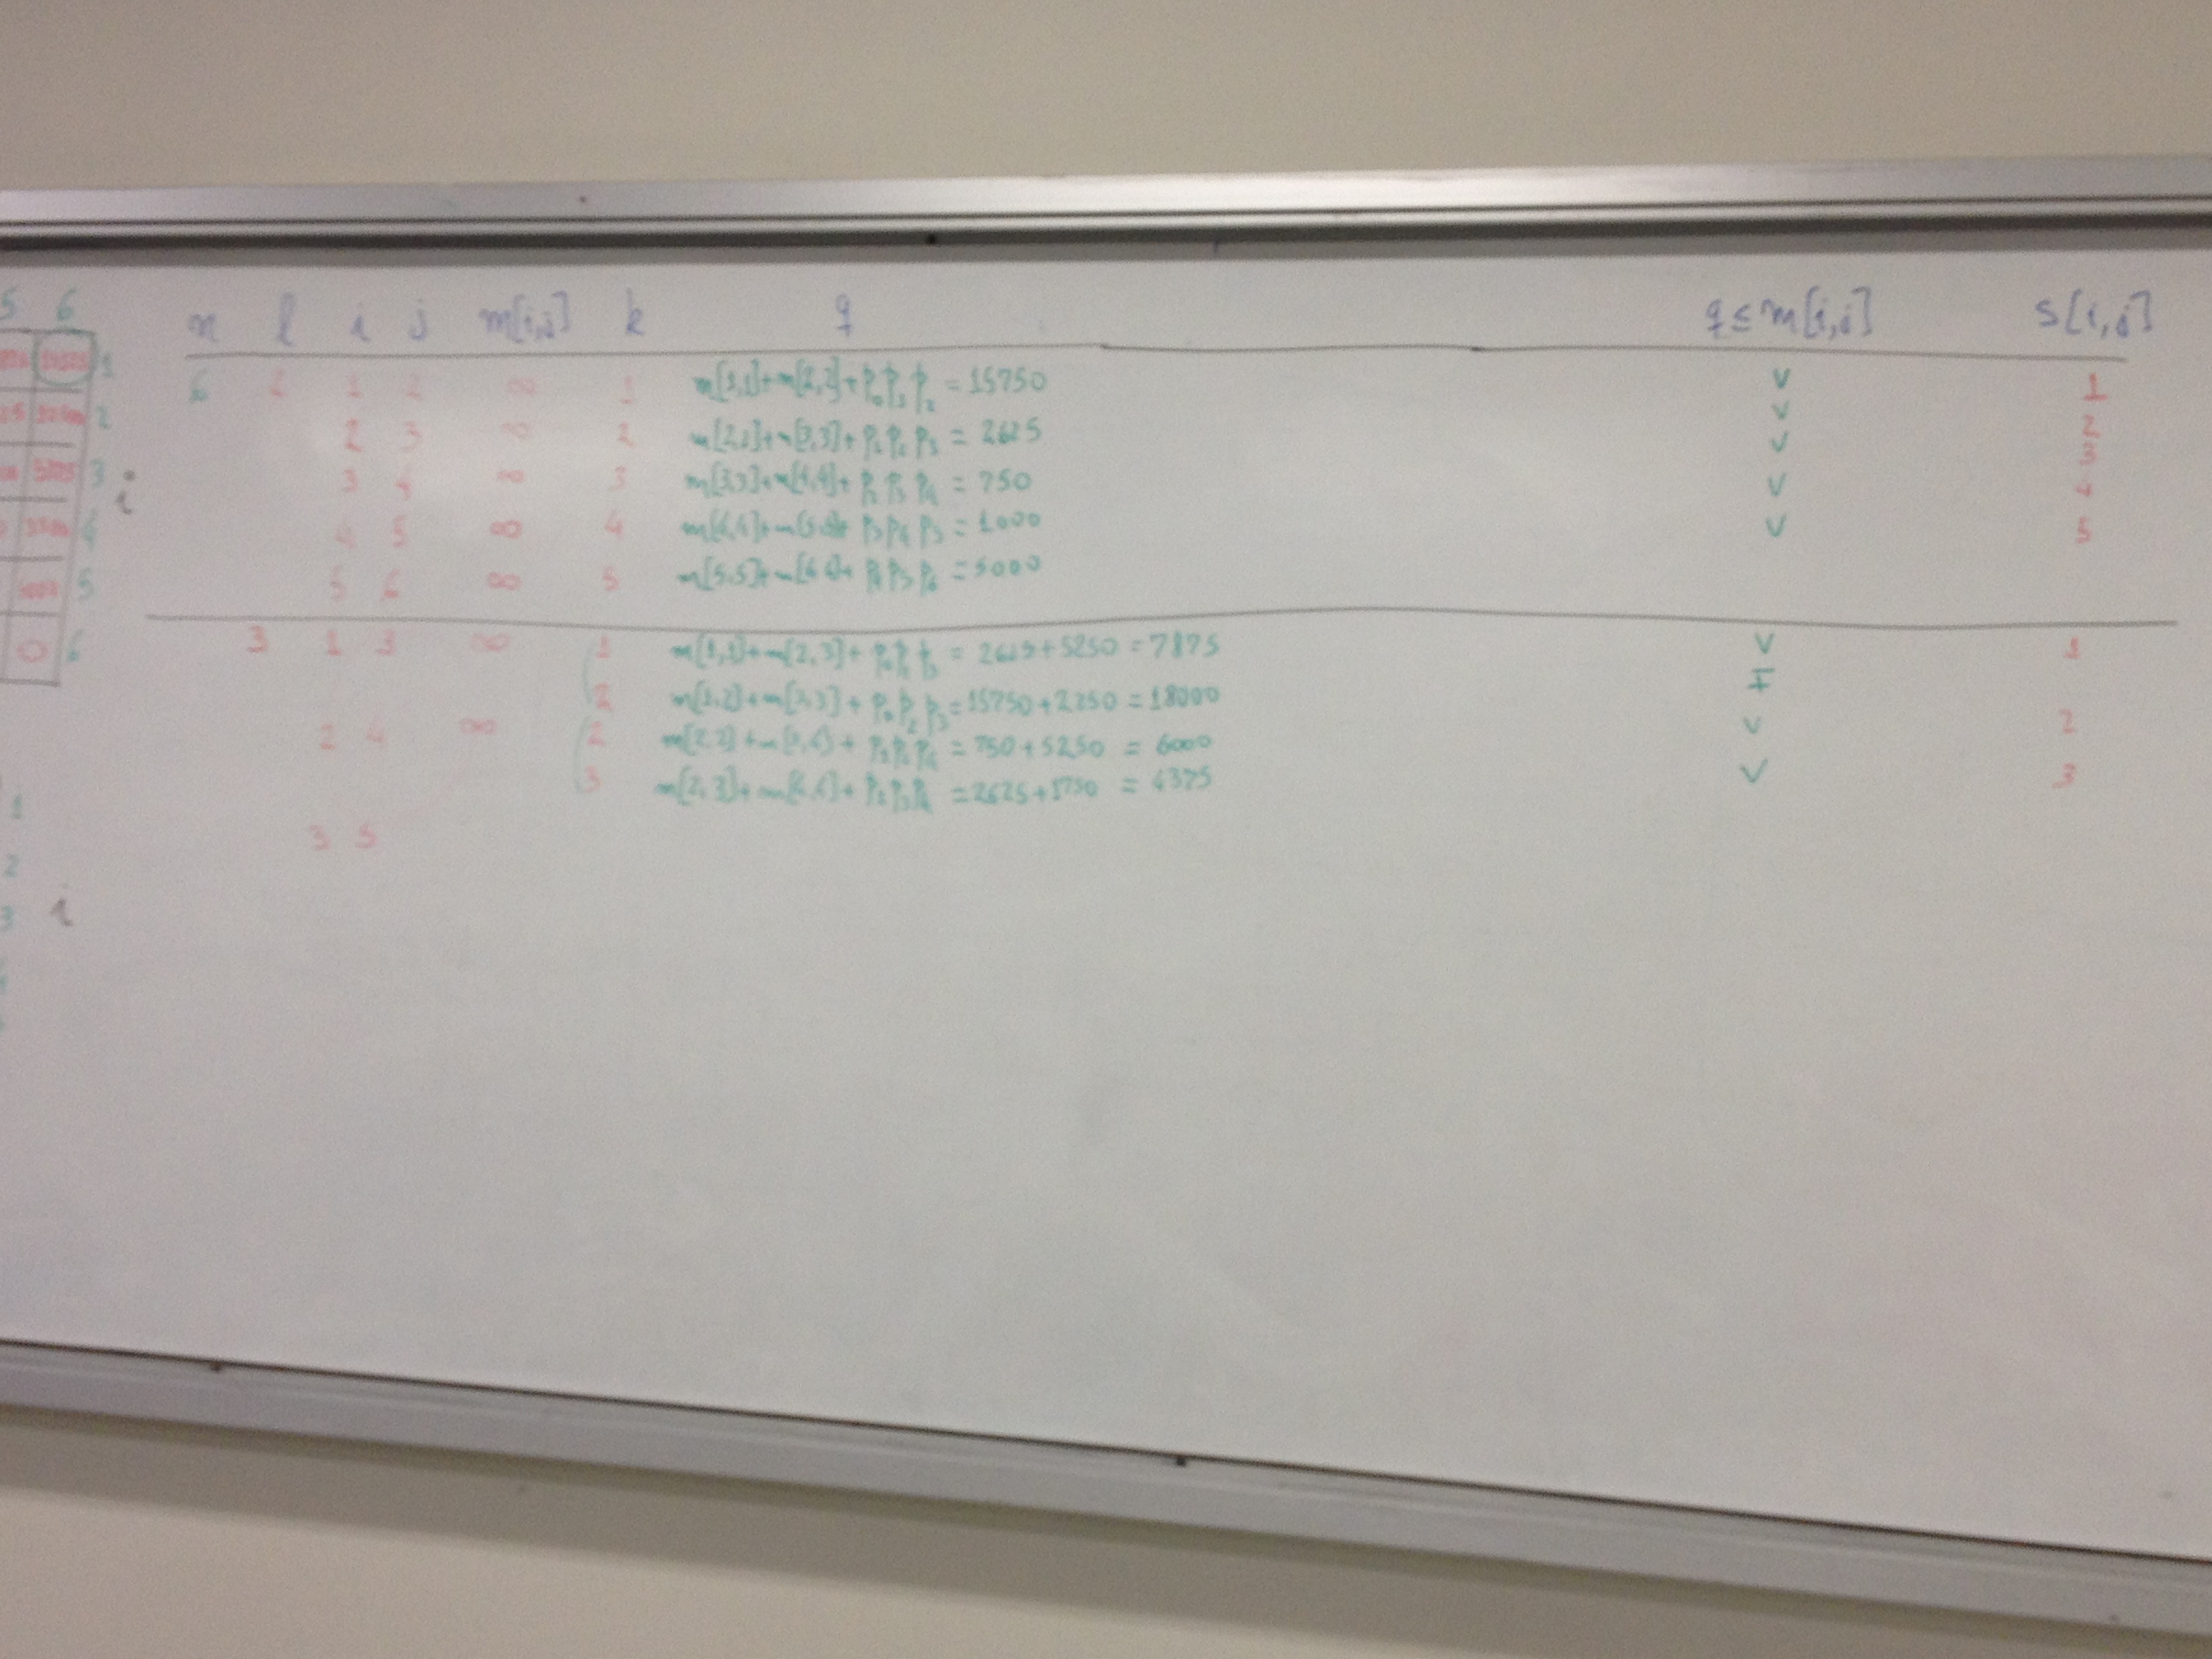 5 6
n l i j m[i,j] k q q ≤ m[i,j] s[i,j]
1
6 2 1 2 ∞ 1 m[1,1]+m[2,2]+p₀p₁p₂ = 15750 V 1
2
2 3 ∞ 2 m[2,2]+m[3,3]+p₁p₂p₃ = 2625 V 2
3 i
3 4 ∞ 3 m[3,3]+m[4,4]+p₂p₃p₄ = 750 V 3
4
4 5 ∞ 4 m[4,4]+m[5,5]+p₃p₄p₅ = 1000 V 4
5
5 6 ∞ 5 m[5,5]+m[6,6]+p₄p₅p₆ = 5000 V 5
0 6
3 1 3 ∞ 1 m[1,1]+m[2,3]+p₀p₁p₃ = 2625+5250 = 7875 V 1
2 m[1,2]+m[3,3]+p₀p₂p₃ = 15750+2250 = 18000 F
2 4 ∞ 2 m[2,2]+m[3,4]+p₁p₂p₄ = 750+5250 = 6000 V 2
3 m[2,3]+m[4,4]+p₁p₃p₄ = 2625+1750 = 4375 V 3
1
3 5
2
3 i